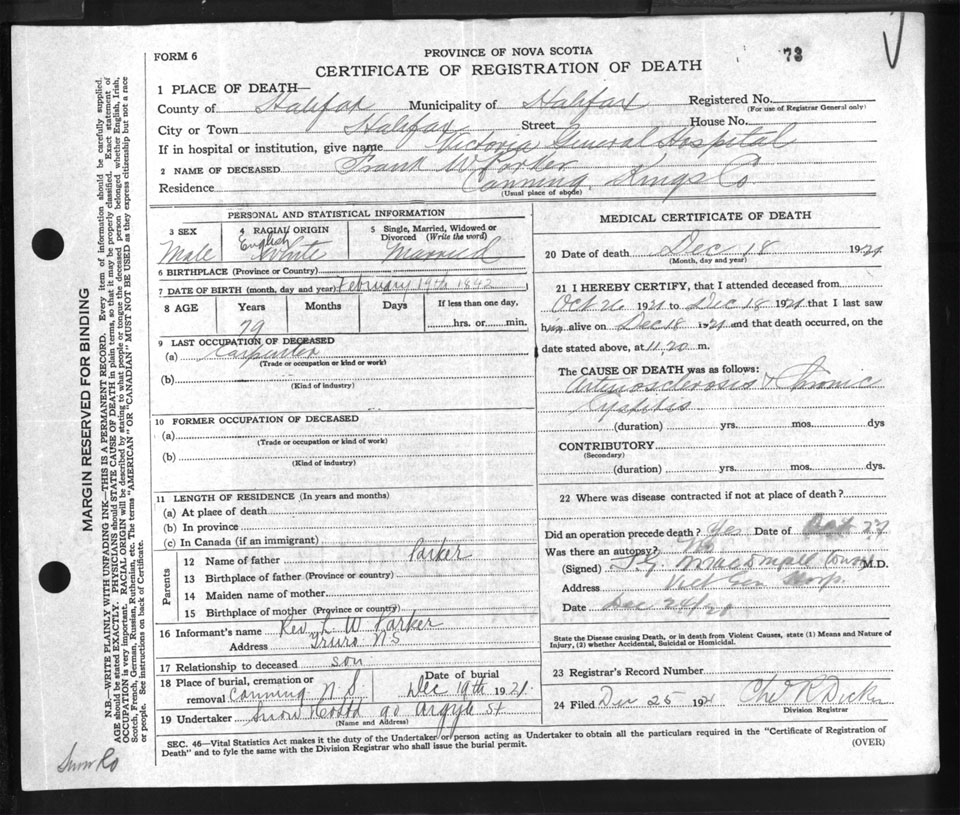 FORM 6
PROVINCE OF NOVA SCOTIA
73
CERTIFICATE OF REGISTRATION OF DEATH
1 PLACE OF DEATH—
County of Halifax Municipality of Halifax Registered No.
(For use of Registrar General only)
City or Town Halifax Street House No.
If in hospital or institution, give name Victoria General Hospital
2 NAME OF DECEASED Frank W Parker
Residence Canning Kings Co
(Usual place of abode)
PERSONAL AND STATISTICAL INFORMATION
3 SEX 4 RACIAL ORIGIN 5 Single, Married, Widowed or Divorced (Write the word)
Male English White Married
6 BIRTHPLACE (Province or Country)
7 DATE OF BIRTH (month, day and year) February 19th 1842
8 AGE Years Months Days If less than one day,
79 hrs. or min.
9 LAST OCCUPATION OF DECEASED
(a) Carpenter
(Trade or occupation or kind or work)
(b)
(Kind of industry)
10 FORMER OCCUPATION OF DECEASED
(a)
(Trade or occupation or kind of work)
(b)
(Kind of industry)
11 LENGTH OF RESIDENCE (In years and months)
(a) At place of death
(b) In province
(c) In Canada (if an immigrant)
Parents
12 Name of father Parker
13 Birthplace of father (Province or country)
14 Maiden name of mother
15 Birthplace of mother (Province or country)
16 Informant's name Rev L W Parker
Address Truro N S
17 Relationship to deceased son
18 Place of burial, cremation or removal Canning N S Date of burial Dec 19th 1921
19 Undertaker Snow & Co Ltd 90 Argyle St
(Name and Address)
MEDICAL CERTIFICATE OF DEATH
20 Date of death Dec 18 1921
(Month, day and year)
21 I HEREBY CERTIFY, that I attended deceased from
Oct 26 1921 to Dec 18 1921 that I last saw
him alive on Dec 18 1921 and that death occurred, on the
date stated above, at 11.20 m.
The CAUSE OF DEATH was as follows:
Arteriosclerosis & Chronic
Cystitis
(duration) yrs. mos. dys
CONTRIBUTORY
(Secondary)
(duration) yrs. mos. dys.
22 Where was disease contracted if not at place of death?
Did an operation precede death? Yes Date of Oct 27
Was there an autopsy? No
(Signed) M.D.
Address Vict Gen Hosp.
Date Dec 24/21
State the Disease causing Death, or in death from Violent Causes, state (1) Means and Nature of
Injury, (2) whether Accidental, Suicidal or Homicidal.
23 Registrar's Record Number
24 Filed Dec 25 1921
Division Registrar
SEC. 46—Vital Statistics Act makes it the duty of the Undertaker or person acting as Undertaker to obtain all the particulars required in the "Certificate of Registration of
Death" and to fyle the same with the Division Registrar who shall issue the burial permit.
(OVER)
MARGIN RESERVED FOR BINDING
N.B.—WRITE PLAINLY WITH UNFADING INK—THIS IS A PERMANENT RECORD. Every item of information should be carefully supplied.
AGE should be stated EXACTLY. PHYSICIANS should STATE CAUSE OF DEATH in plain terms, so that it may be properly classified. Exact statement of
OCCUPATION is very important. RACIAL ORIGIN will be described by stating to what people or tongue the deceased person belonged whether English, Irish,
Scotch, French, German, Russian, Ruthenian, etc. The terms "AMERICAN" OR "CANADIAN" MUST NOT BE USED as they express citizenship but not a race
or people. See instructions on back of Certificate.